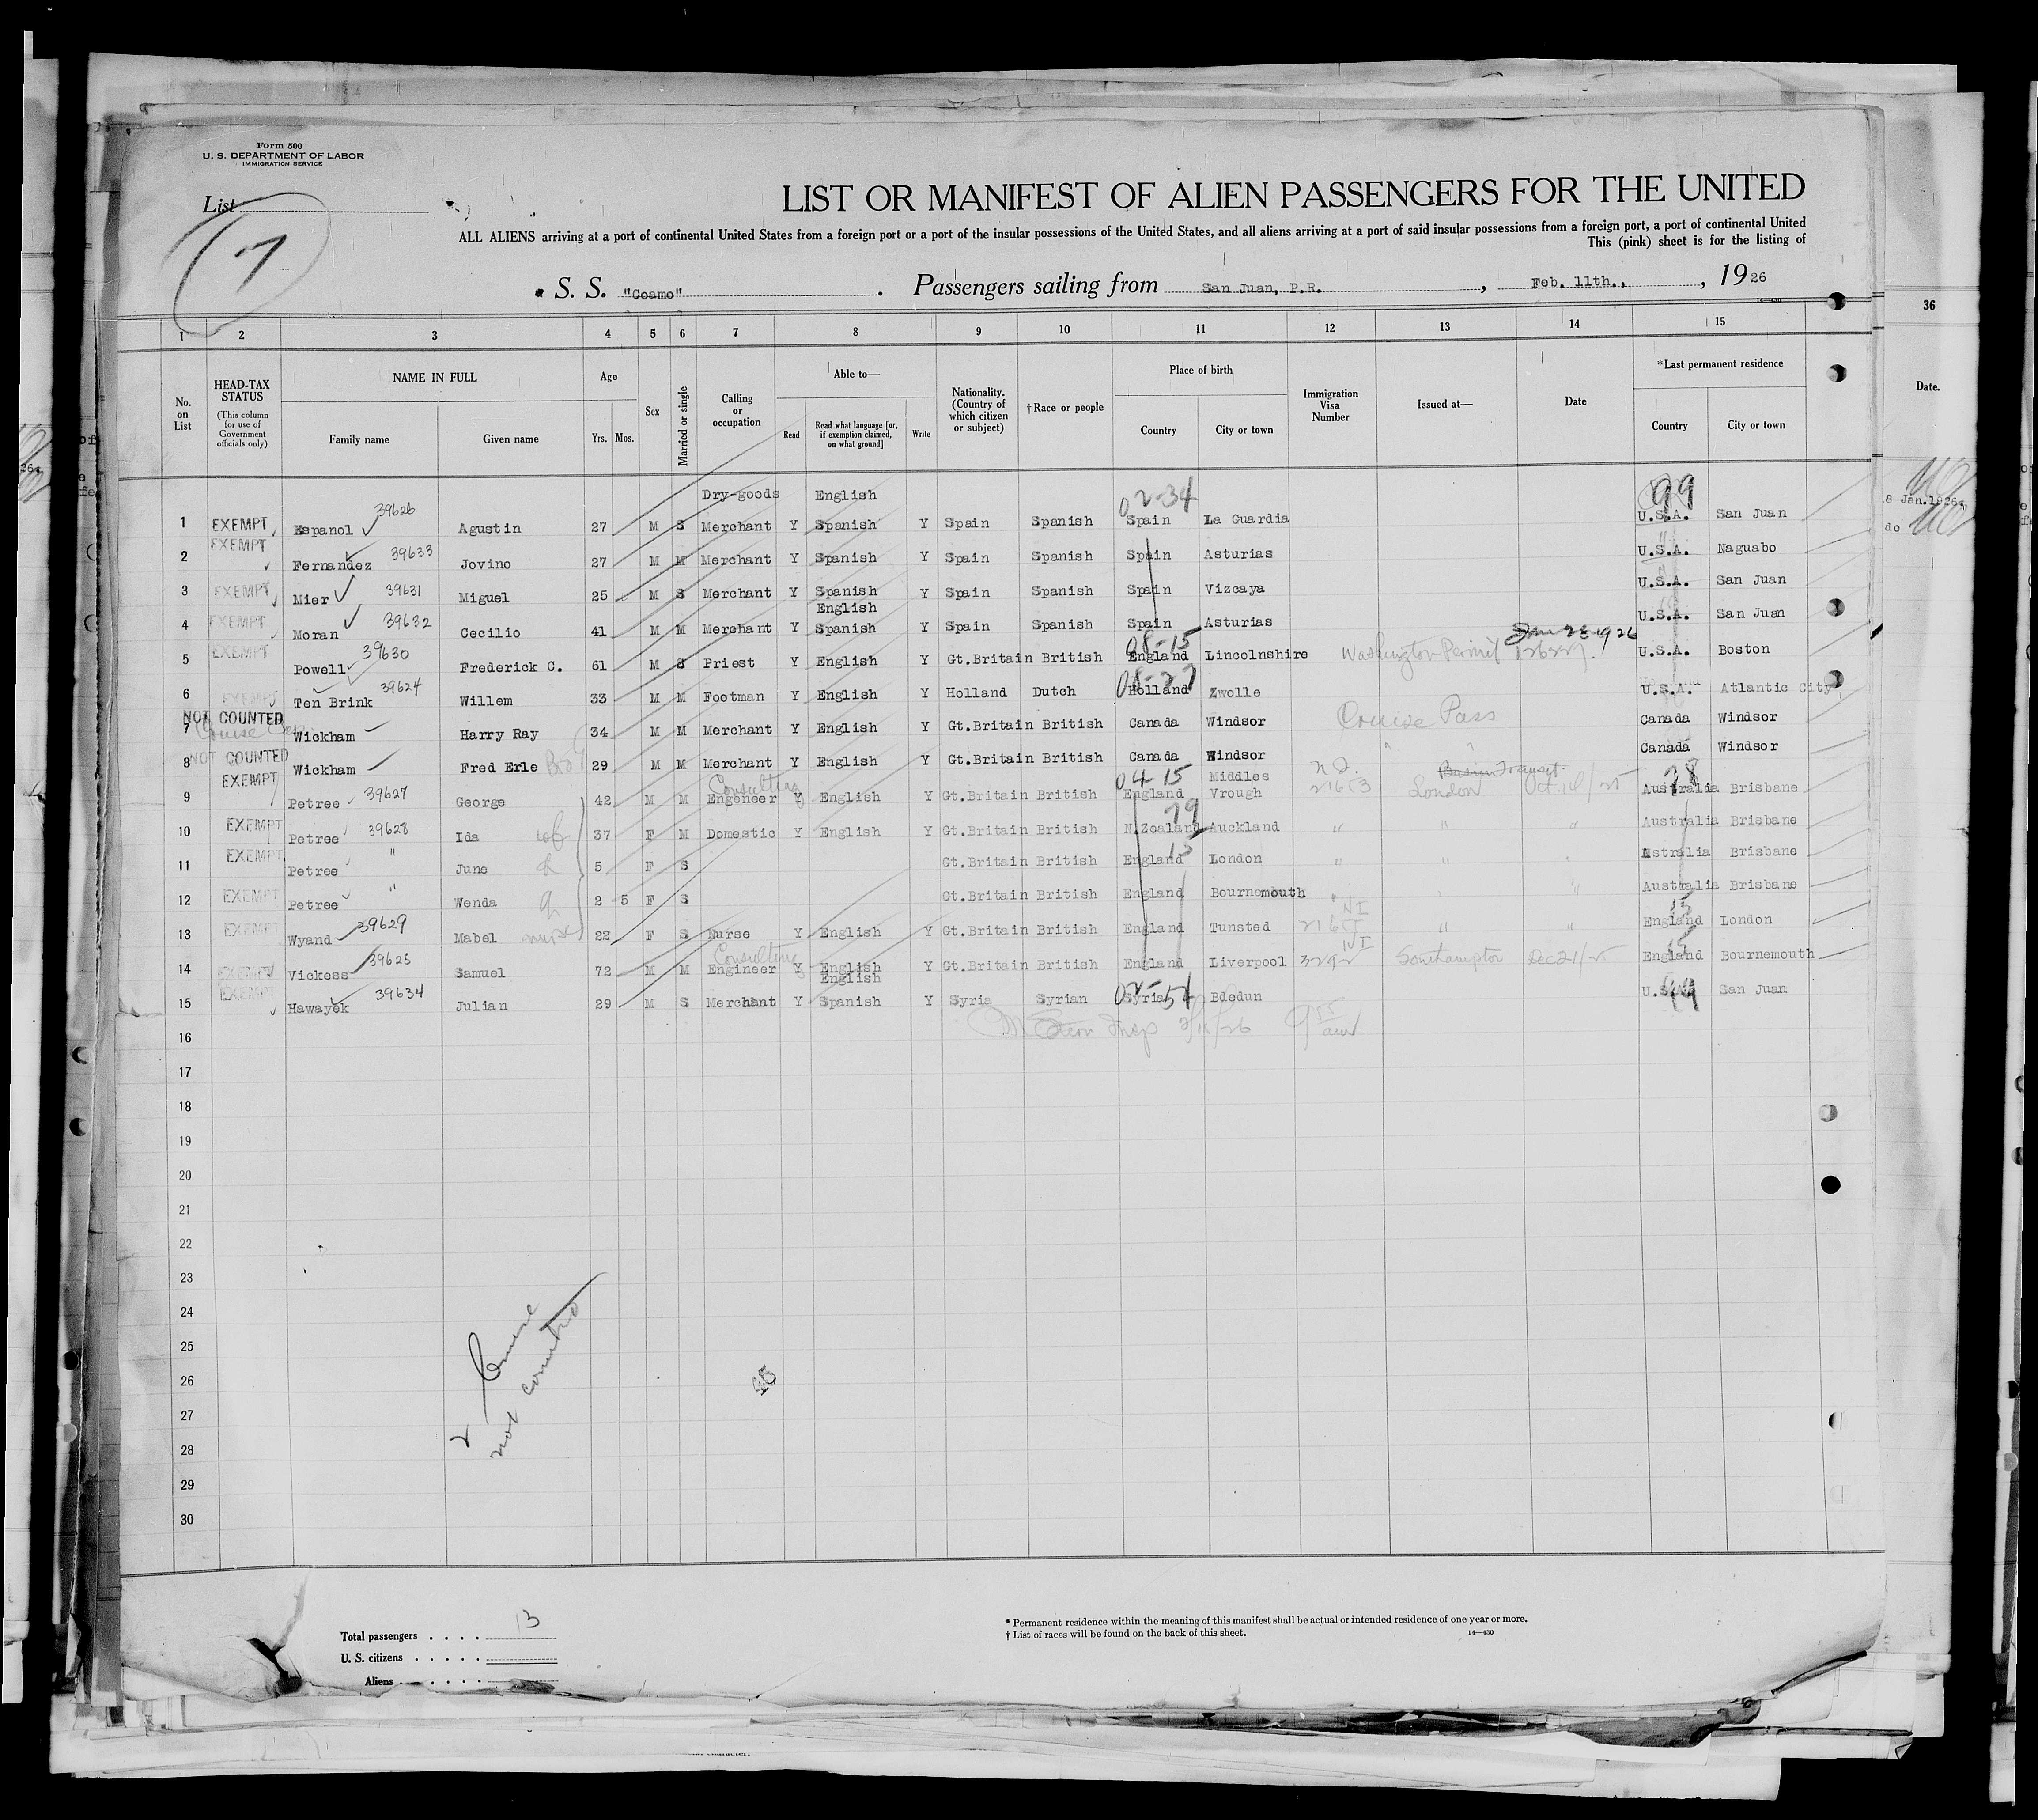 Form 500
U. S. DEPARTMENT OF LABOR
IMMIGRATION SERVICE
List
7
LIST OR MANIFEST OF ALIEN PASSENGERS FOR THE UNITED
ALL ALIENS arriving at a port of continental United States from a foreign port or a port of the insular possessions of the United States, and all aliens arriving at a port of said insular possessions from a foreign port, a port of continental United
This (pink) sheet is for the listing of
S. S. "Coamo". Passengers sailing from San Juan, P.R., Feb. 11th., , 1926
1 2 3 4 5 6 7 8 9 10 11 12 13 14 15 36
No. on List
HEAD-TAX STATUS
(This column for use of Government officials only)
NAME IN FULL
Family name Given name
Age
Yrs. Mos.
Sex
Married or single
Calling or occupation
Able to—
Read
Read what language [or, if exemption claimed, on what ground]
Write
Nationality. (Country of which citizen or subject)
†Race or people
Place of birth
Country City or town
Immigration Visa Number
Issued at—
Date
*Last permanent residence
Country City or town
Date.
Dry-goods English 02-34 99 8 Jan.1926,
1 EXEMPT Espanol 39626 Agustin 27 M S Merchant Y Spanish Y Spain Spanish Spain La Guardia U.S.A. San Juan do
2 EXEMPT Fernandez 39633 Jovino 27 M M Merchant Y Spanish Y Spain Spanish Spain Asturias U.S.A. Naguabo
3 EXEMPT Mier 39631 Miguel 25 M S Merchant Y Spanish Y Spain Spanish Spain Vizcaya U.S.A. San Juan
English
4 EXEMPT Moran 39632 Cecilio 41 M M Merchant Y Spanish Y Spain Spanish Spain Asturias U.S.A. San Juan
08-15 Jan 23 1926
5 EXEMPT Powell 39630 Frederick C. 61 M S Priest Y English Y Gt.Britain British England Lincolnshire Washington Permit U.S.A. Boston
08-27
6 EXEMPT Ten Brink 39624 Willem 33 M M Footman Y English Y Holland Dutch Holland Zwolle U.S.A. Atlantic City
7 NOT COUNTED Cruise Wickham Harry Ray 34 M M Merchant Y English Y Gt.Britain British Canada Windsor Cruise Pass Canada Windsor
8 NOT COUNTED Wickham Fred Erle Bro 29 M M Merchant Y English Y Gt.Britain British Canada Windsor " " Canada Windsor
Consulting 04-15 Middles Transit 78
9 EXEMPT Petree 39627 George 42 M M Engeneer Y English Y Gt.Britain British England Vrough London Australia Brisbane
79
10 EXEMPT Petree 39628 Ida wf 37 F M Domestic Y English Y Gt.Britain British N.Zealand Auckland " " " Australia Brisbane
15
11 EXEMPT Petree " June 5 F S Gt.Britain British England London " " " Australia Brisbane
12 EXEMPT Petree " Wenda 2 5 F S Gt.Britain British England Bournemouth " " " Australia Brisbane
N I 15
13 EXEMPT Wyand 39629 Mabel nurse 22 F S Nurse Y English Y Gt.Britain British England Tunsted " " England London
Consulting N I 15
14 EXEMPT Vickess 39625 Samuel 72 M M Engineer Y English Y Gt.Britain British England Liverpool 3292 Southampton Dec 21/25 England Bournemouth
English
15 EXEMPT Hawayek 39634 Julian 29 M S Merchant Y Spanish Y Syria Syrian 02-51 Syria Bdedun U.S.A. 99 San Juan
Insp 9 55 am
16
17
18
19
20
21
22
23
24
25
26
27
28
29
30
2 Cruise
not counted
Total passengers . . . . 13
U. S. citizens . . . . .
Aliens . . . . . .
* Permanent residence within the meaning of this manifest shall be actual or intended residence of one year or more.
† List of races will be found on the back of this sheet. 14—430